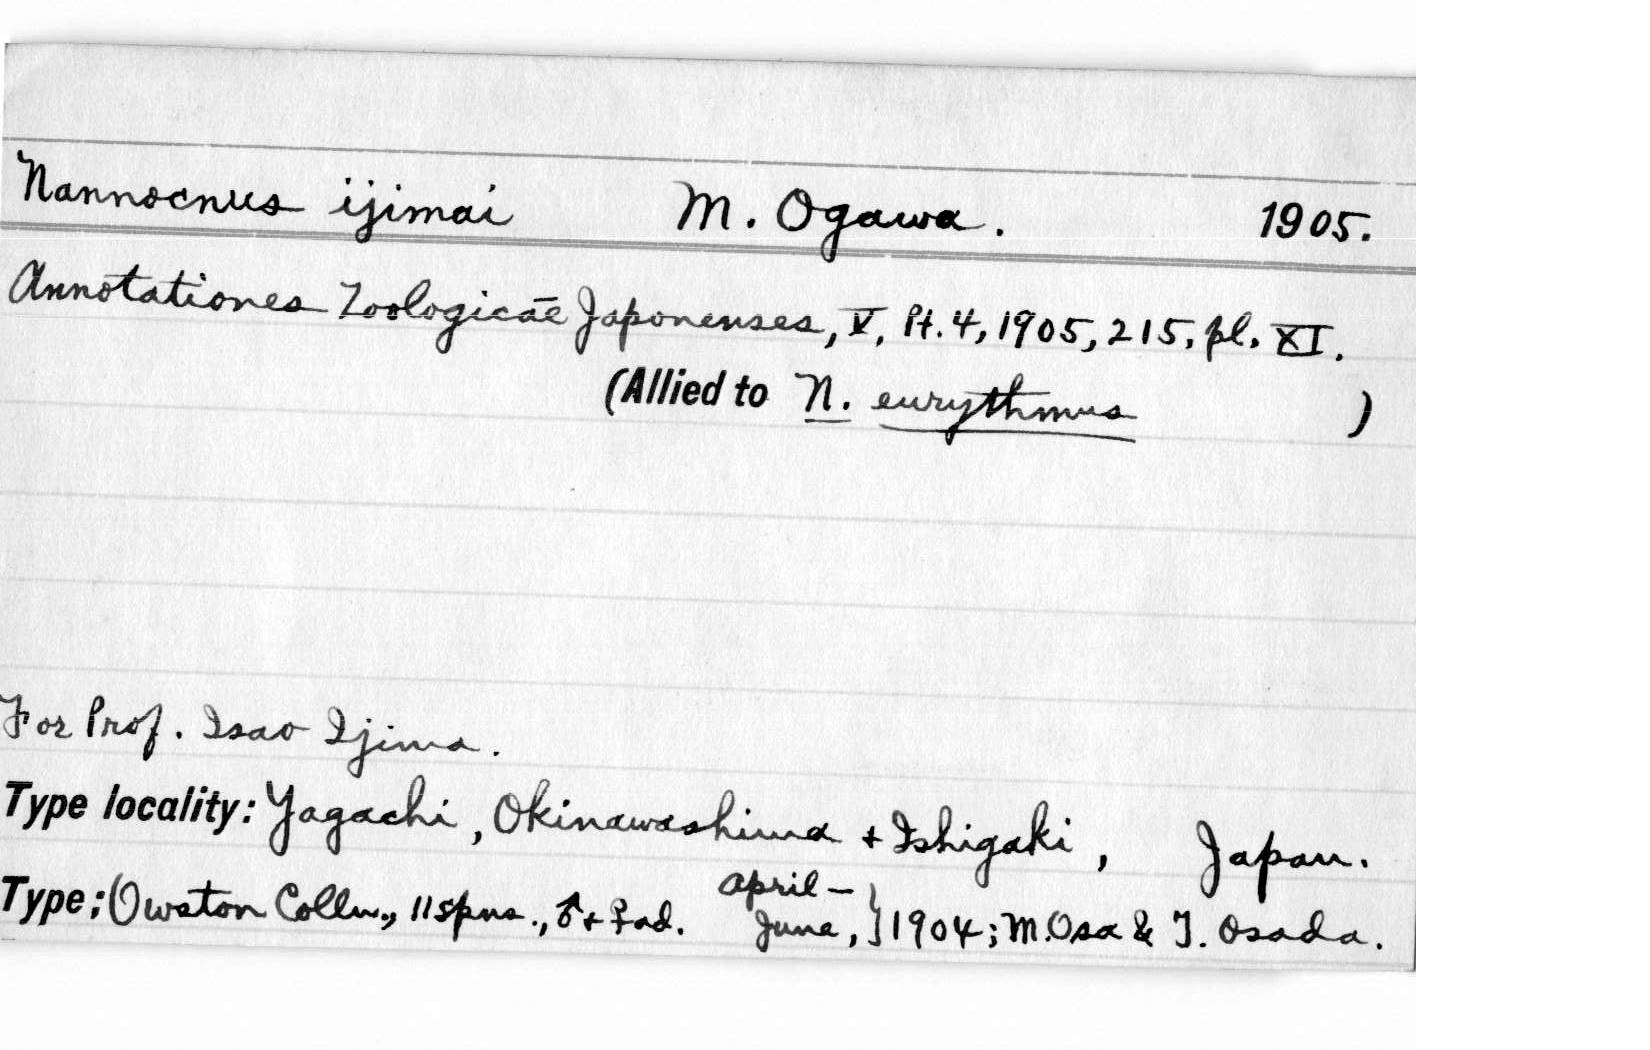 Nannocnus ijimai M. Ogawa. 1905.
Annotationes Zoologicæ Japonenses, V, Pt. 4, 1905, 215, pl. XI.
(Allied to N. eurythmus )
For Prof. Isao Ijima.
Type locality: Yagachi, Okinawashima + Ishigaki, Japan.
Type: Owston Colln., 11 spns., ♂ + ♀ ad. April – June, } 1904; M. Osa & T. Osada.